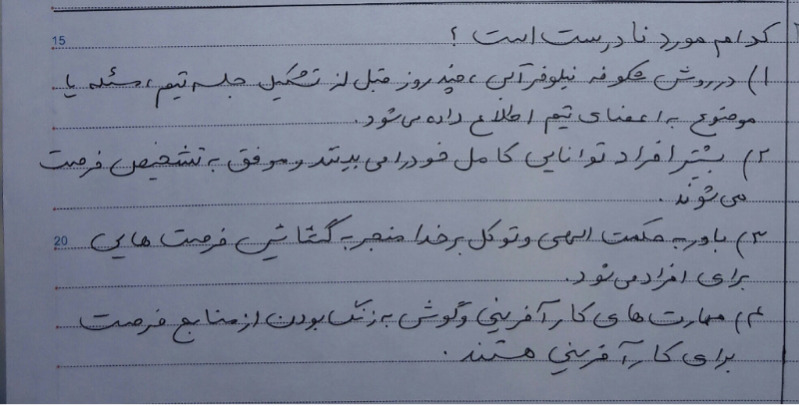 15
کدام مورد نادرست است ؟
۱) در روش شکوفه نیلوفر آبی ، چند روز قبل از تشکیل جلسه تیم ، مسئله یا
موضوع به اعضای تیم اطلاع داده می‌شود.
۲) بیشتر افراد توانایی کامل خود را می بینند و موفق به تشخیص فرصت
می‌شوند .
20 ۳) باور به حکمت الهی و توکل بر خدا منجر به گشایش فرصت هایی
برای افراد می‌شود.
۴) مهارت های کارآفرینی و گوش به زنگ بودن از منابع فرصت
برای کارآفرینی هستند .